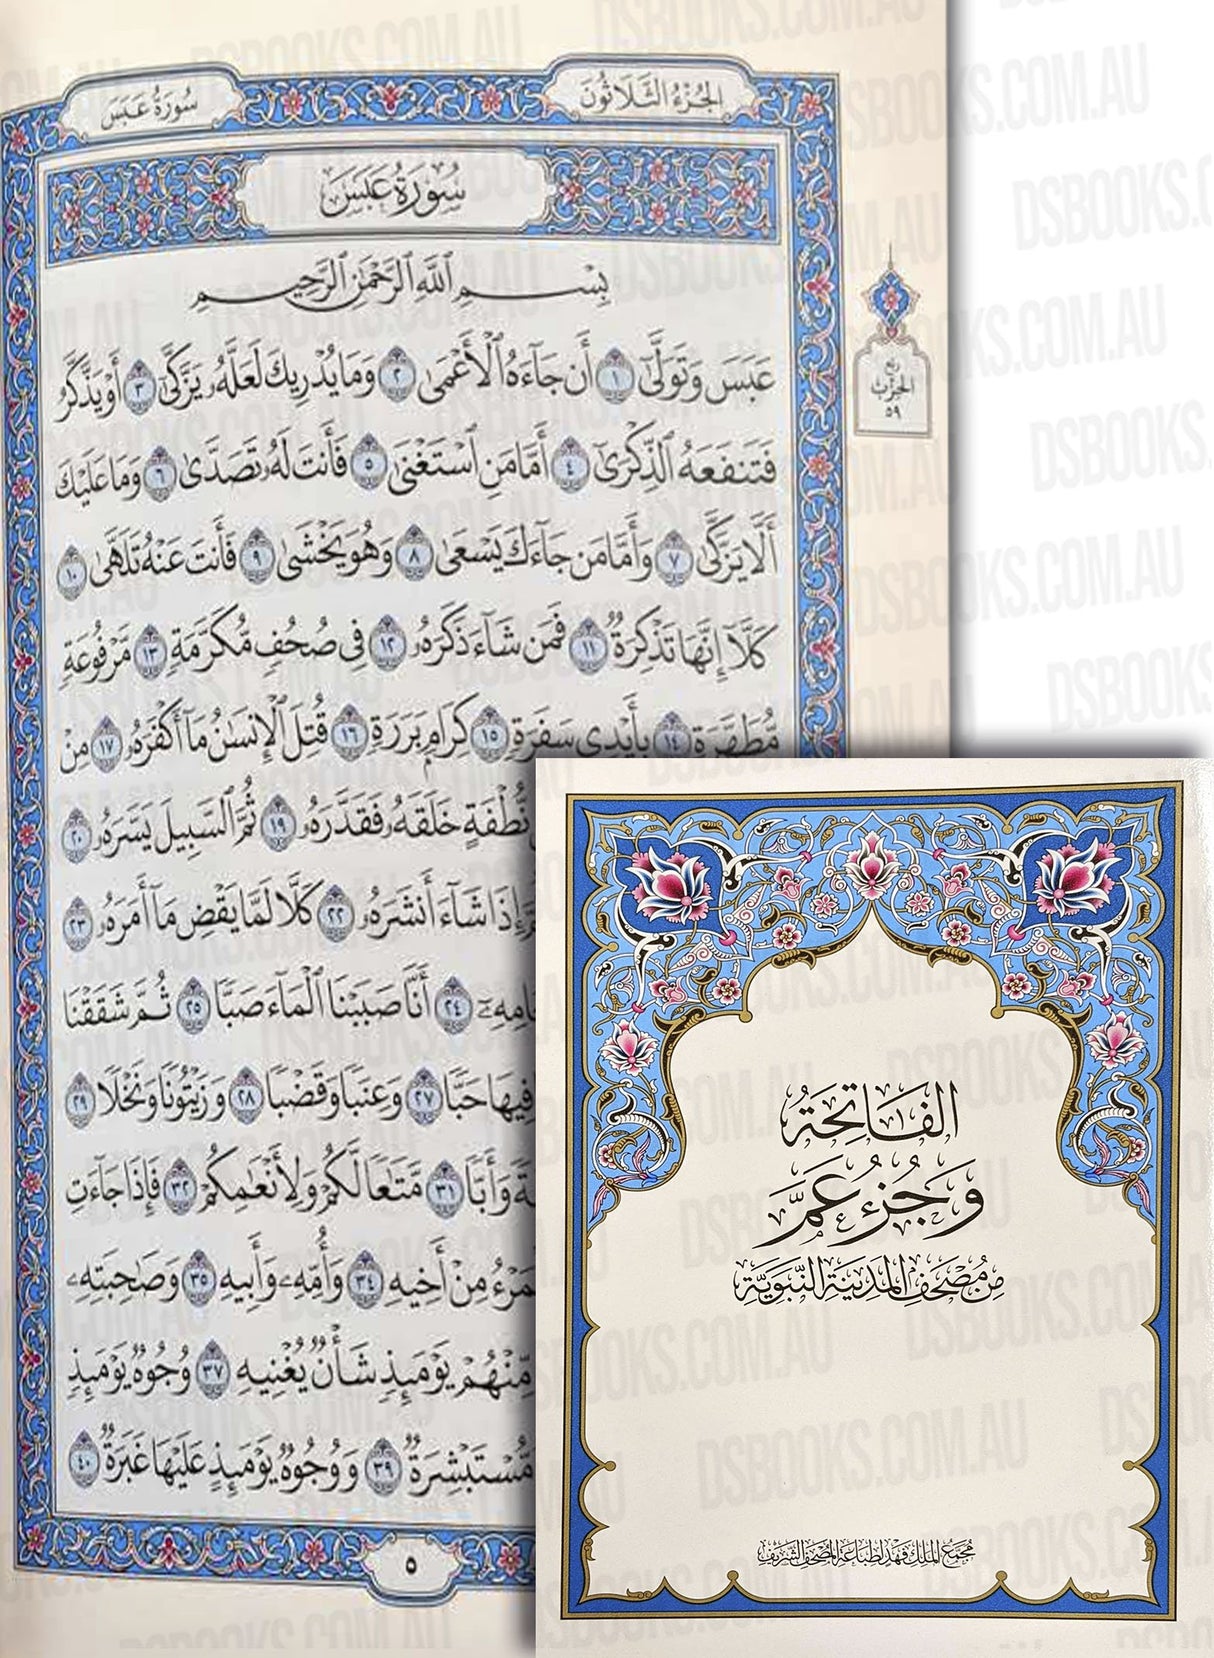 سُورَةُ عَبَسَ
الجُزْءُ الثَّلَاثُونَ
سُورَةُ عَبَسَ
بِسْمِ ٱللَّهِ ٱلرَّحْمَٰنِ ٱلرَّحِيمِ
عَبَسَ وَتَوَلَّىٰٓ ١ أَن جَآءَهُ ٱلْأَعْمَىٰ ٢ وَمَا يُدْرِيكَ لَعَلَّهُۥ يَزَّكَّىٰٓ ٣ أَوْ يَذَّكَّرُ
فَتَنفَعَهُ ٱلذِّكْرَىٰٓ ٤ أَمَّا مَنِ ٱسْتَغْنَىٰ ٥ فَأَنتَ لَهُۥ تَصَدَّىٰ ٦ وَمَا عَلَيْكَ
أَلَّا يَزَّكَّىٰ ٧ وَأَمَّا مَن جَآءَكَ يَسْعَىٰ ٨ وَهُوَ يَخْشَىٰ ٩ فَأَنتَ عَنْهُ تَلَهَّىٰ ١٠
كَلَّآ إِنَّهَا تَذْكِرَةٌ ١١ فَمَن شَآءَ ذَكَرَهُۥ ١٢ فِى صُحُفٍ مُّكَرَّمَةٍ ١٣ مَّرْفُوعَةٍ
مُّطَهَّرَةٍۭ ١٤ بِأَيْدِى سَفَرَةٍ ١٥ كِرَامٍۭ بَرَرَةٍ ١٦ قُتِلَ ٱلْإِنسَٰنُ مَآ أَكْفَرَهُۥ ١٧ مِنْ
نُّطْفَةٍ خَلَقَهُۥ فَقَدَّرَهُۥ ١٩ ثُمَّ ٱلسَّبِيلَ يَسَّرَهُۥ ٢٠
إِذَا شَآءَ أَنشَرَهُۥ ٢٢ كَلَّا لَمَّا يَقْضِ مَآ أَمَرَهُۥ ٢٣
٢٤ أَنَّا صَبَبْنَا ٱلْمَآءَ صَبًّا ٢٥ ثُمَّ شَقَقْنَا
فِيهَا حَبًّا ٢٧ وَعِنَبًا وَقَضْبًا ٢٨ وَزَيْتُونًا وَنَخْلًا ٢٩
وَأَبًّا ٣١ مَّتَٰعًا لَّكُمْ وَلِأَنْعَٰمِكُمْ ٣٢ فَإِذَا جَآءَتِ
مِنْ أَخِيهِ ٣٤ وَأُمِّهِۦ وَأَبِيهِ ٣٥ وَصَٰحِبَتِهِۦ
مِّنْهُمْ يَوْمَئِذٍ شَأْنٌ يُغْنِيهِ ٣٧ وُجُوهٌ يَوْمَئِذٍ
مُّسْتَبْشِرَةٌ ٣٩ وَوُجُوهٌ يَوْمَئِذٍ عَلَيْهَا غَبَرَةٌ ٤٠
٥
ربع
الحِزْب
٥٩
الفَاتِحَةُ
وَجُزْءُ عَمَّ
مِنْ مُصْحَفِ المَدِينَةِ النَّبَوِيَّةِ
مُجَمَّعُ المَلِكِ فَهْدٍ لِطِبَاعَةِ المُصْحَفِ الشَّرِيفِ
DSBOOKS.COM.AU